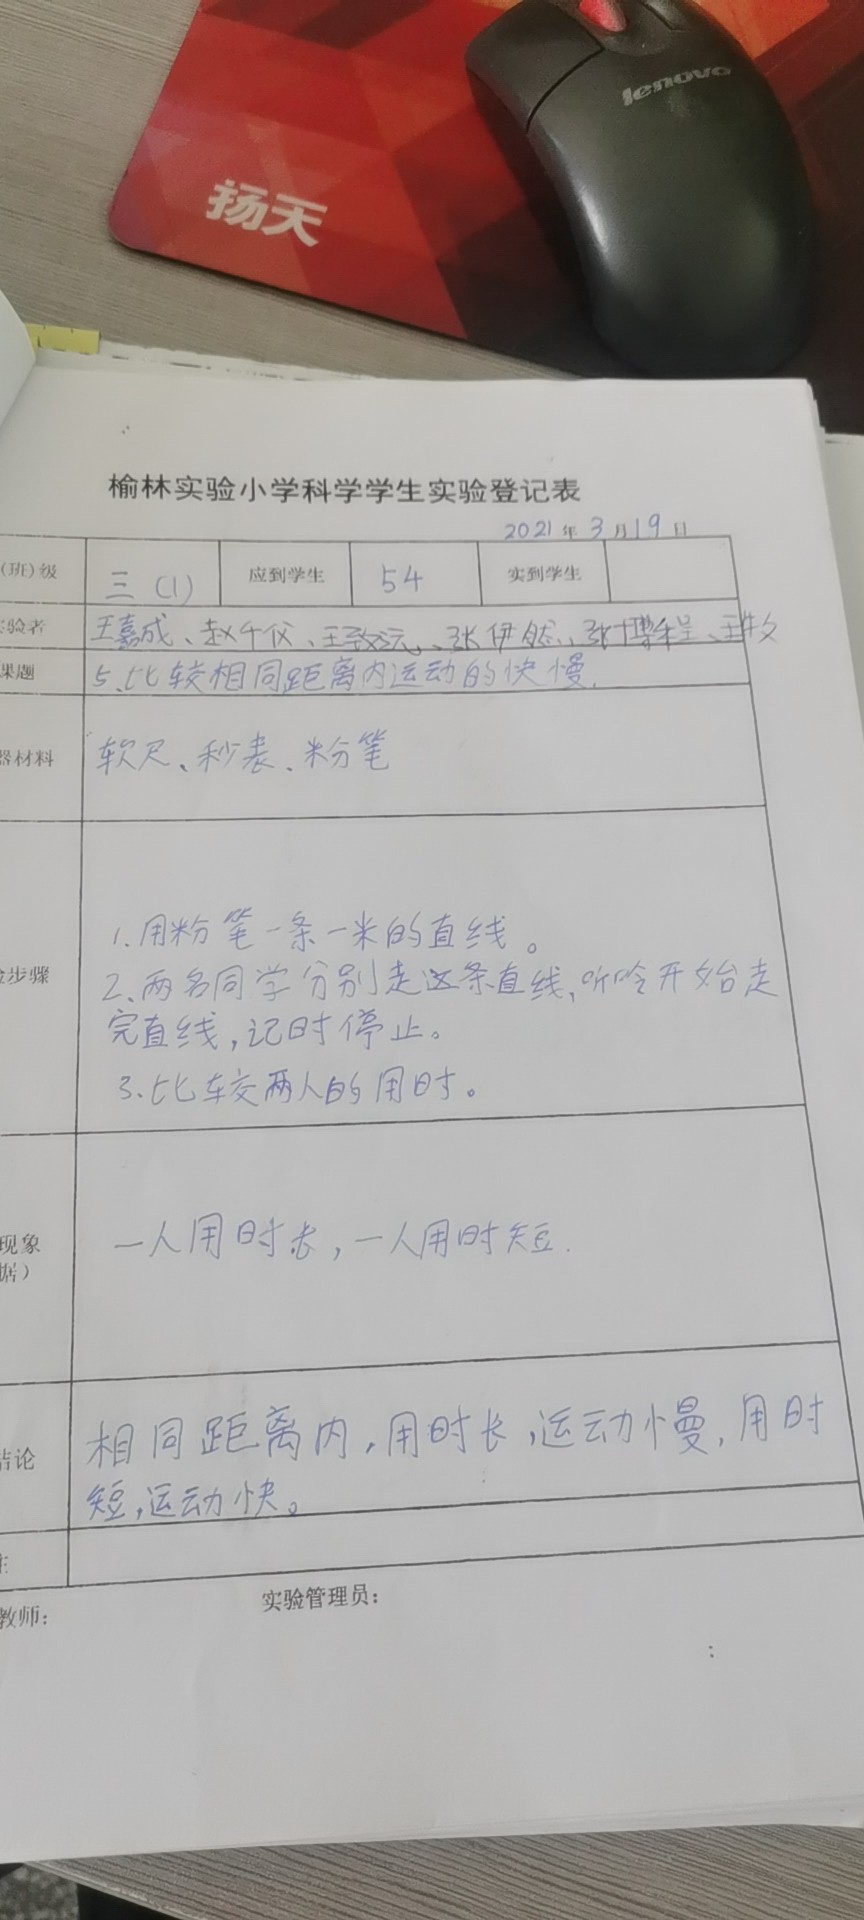 lenovo
扬天
榆林实验小学科学学生实验登记表
2021年3月19日
(班)级 三(1) 应到学生 54 实到学生
验者 王嘉成、赵千仪、王致远、张伊然、张博程、王牧
课题 5.比较相同距离内运动的快慢.
器材料 软尺、秒表、粉笔
步骤
1.用粉笔一条一米的直线。
2.两名同学分别走这条直线,听呤开始走
完直线,记时停止。
3.比较两人的用时。
现象
据)
一人用时长,一人用时短.
结论
相同距离内,用时长,运动慢,用时
短,运动快。
注
教师: 实验管理员: